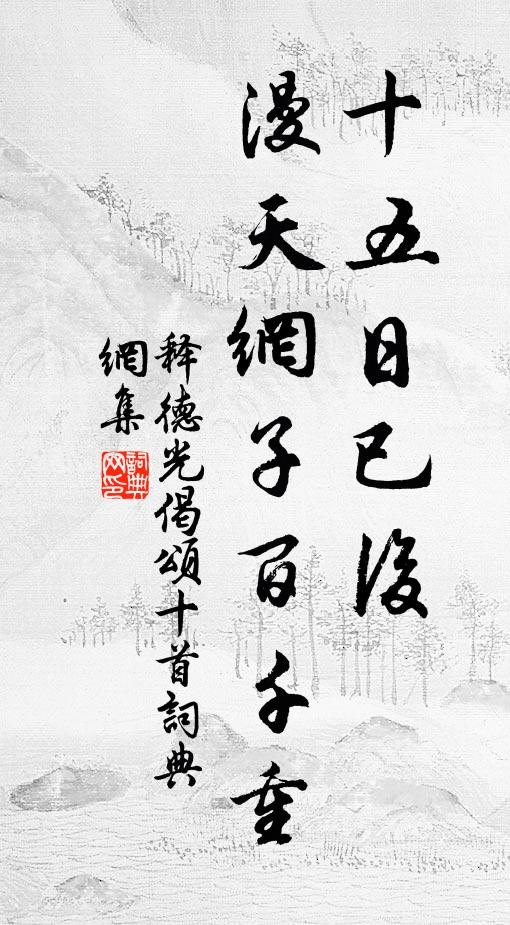 十五日已後
漫天網子百千重
释德光偈頌十首詞典
網集
詞典網印